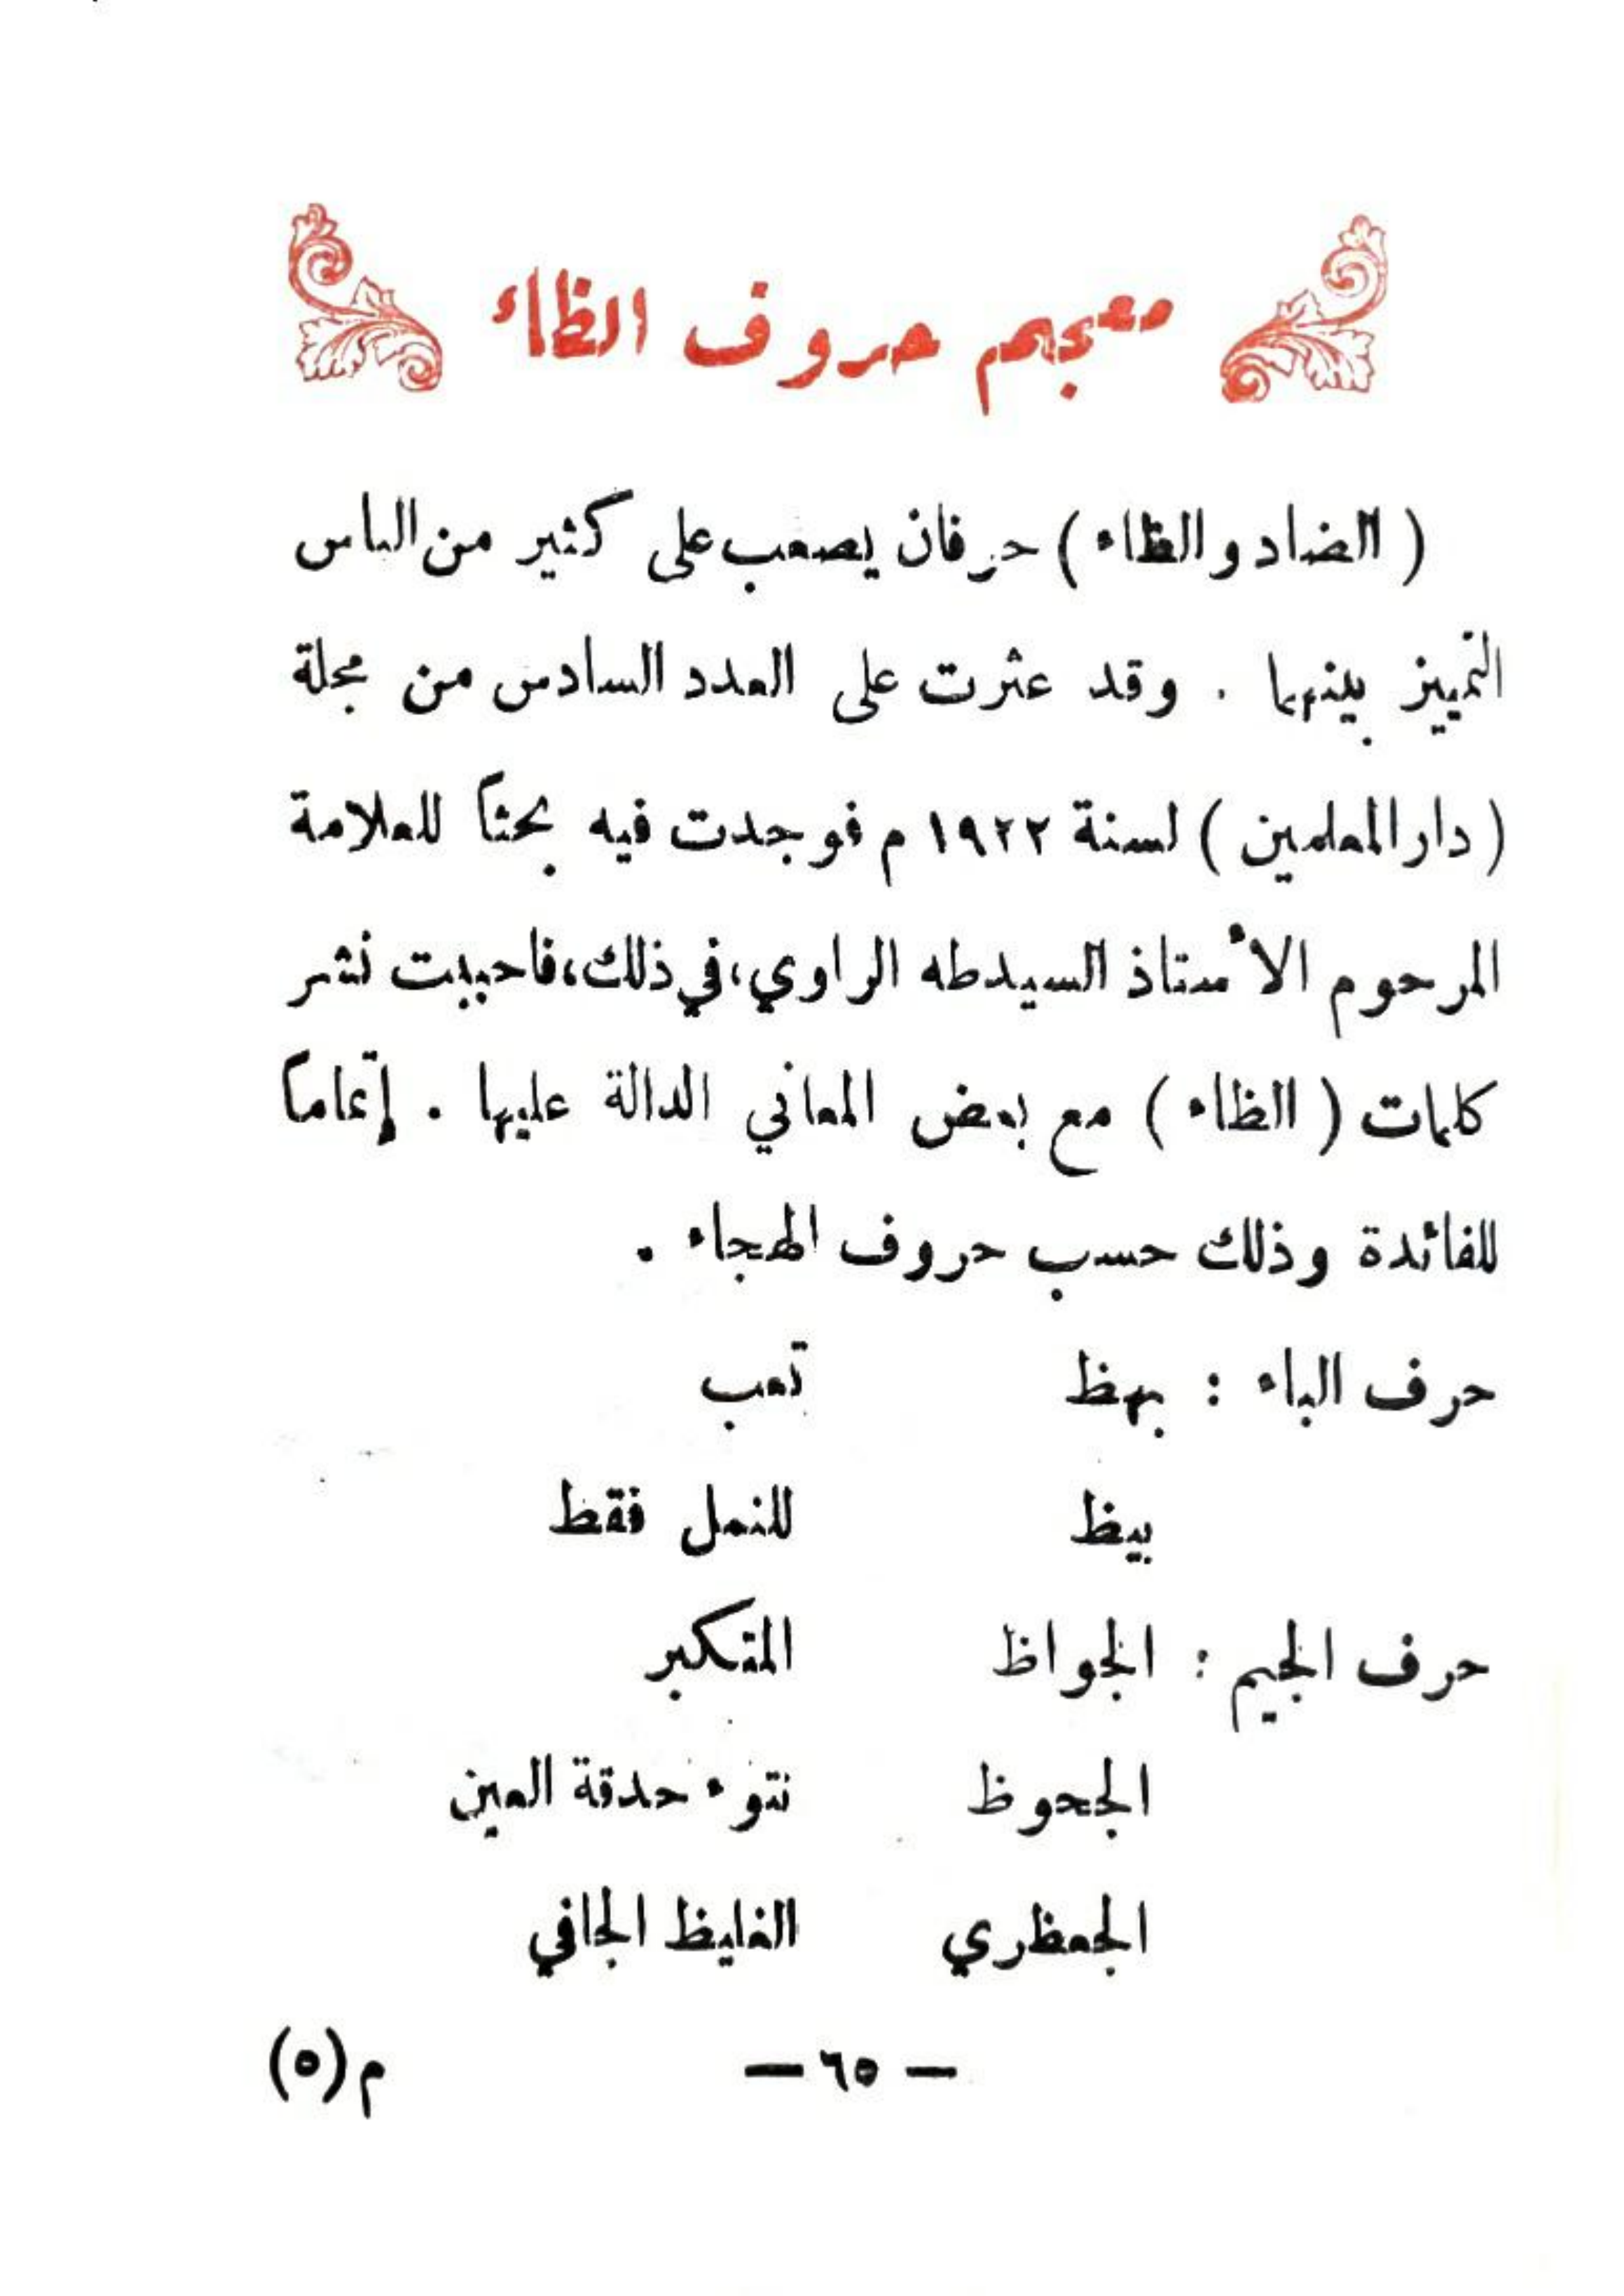 معجم حروف الظاء
( الضاد والظاء ) حرفان يصعب على كثير من الناس
التمييز بينهما . وقد عثرت على العدد السادس من مجلة
( دار المعلمين ) لسنة ١٩٢٢ م فوجدت فيه بحثاً للعلامة
المرحوم الأستاذ السيد طه الراوي، في ذلك، فاحببت نشر
كلمات ( الظاء ) مع بعض المعاني الدالة عليها . إتماماً
للفائدة وذلك حسب حروف الهجاء .
حرف الباء : بهظ تعب
بيظ للنمل فقط
حرف الجيم : الجواظ المتكبر
الجحوظ نتوء حدقة العين
الجعظري الغليظ الجافي
— ٦٥ — م (٥)